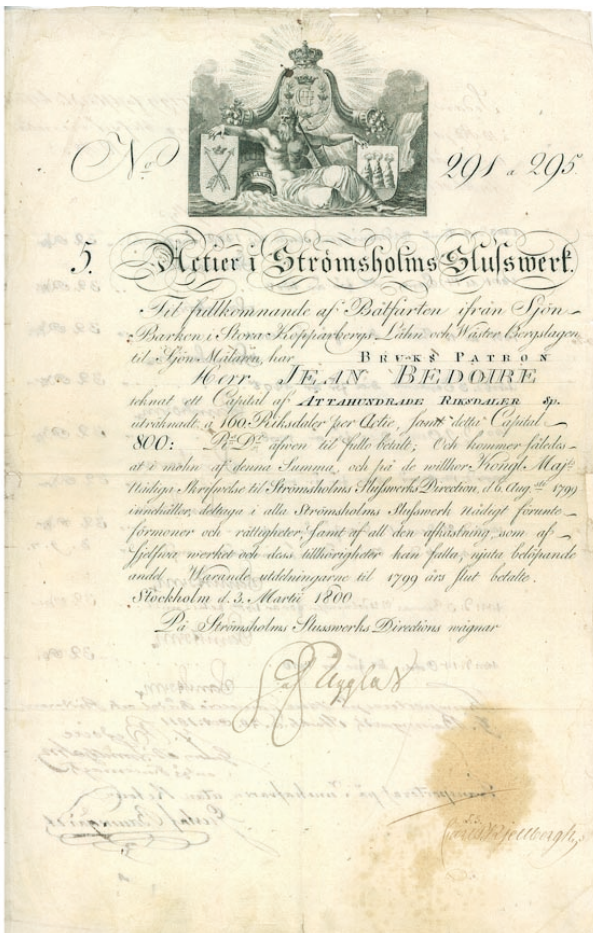 No 291 a 295.
5. Actier i Strömsholms Slusswerk.
Til fullkomnande af Båtfarten ifrån Sjön
Barken i Stora Kopparbergs Lähn och Wäster Bergslagen
til Sjön Mälaren, har BRUKS PATRON
Herr JEAN BEDOIRE
teknat ett Capital af ATTAHUNDRADE RIKSDALER Sp.
uträknadt à 160 Riksdaler per Actie, samt detta Capital
800: Rdr äfwen til fullo betalt; Och kommer således
at i mohn af denna Summa, och på de willkor Kongl. Majts
Nådiga Skrifwelse til Strömsholms Slusswerks Direction, d. 6. Augsti 1799
innehåller, deltaga i alla Strömsholms Slusswerk Nådigt förunte
förmoner och rättigheter, samt af all den afkastning, som af
sjelfva werket och dess tillhörigheter kan falla, njuta belöpande
andel. Warande utdelningarne til 1799 års slut betalte.
Stockholm d. 3. Martii 1800.
På Strömsholms Slusswerks Directions wägnar
Ugglas